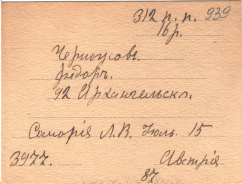 312 п. п. 939
16 р.
Черноусов.
Ѳидоръ.
92 Архангельск.
Самарія Л.В. Іюль. 15
3977. Австрія
87